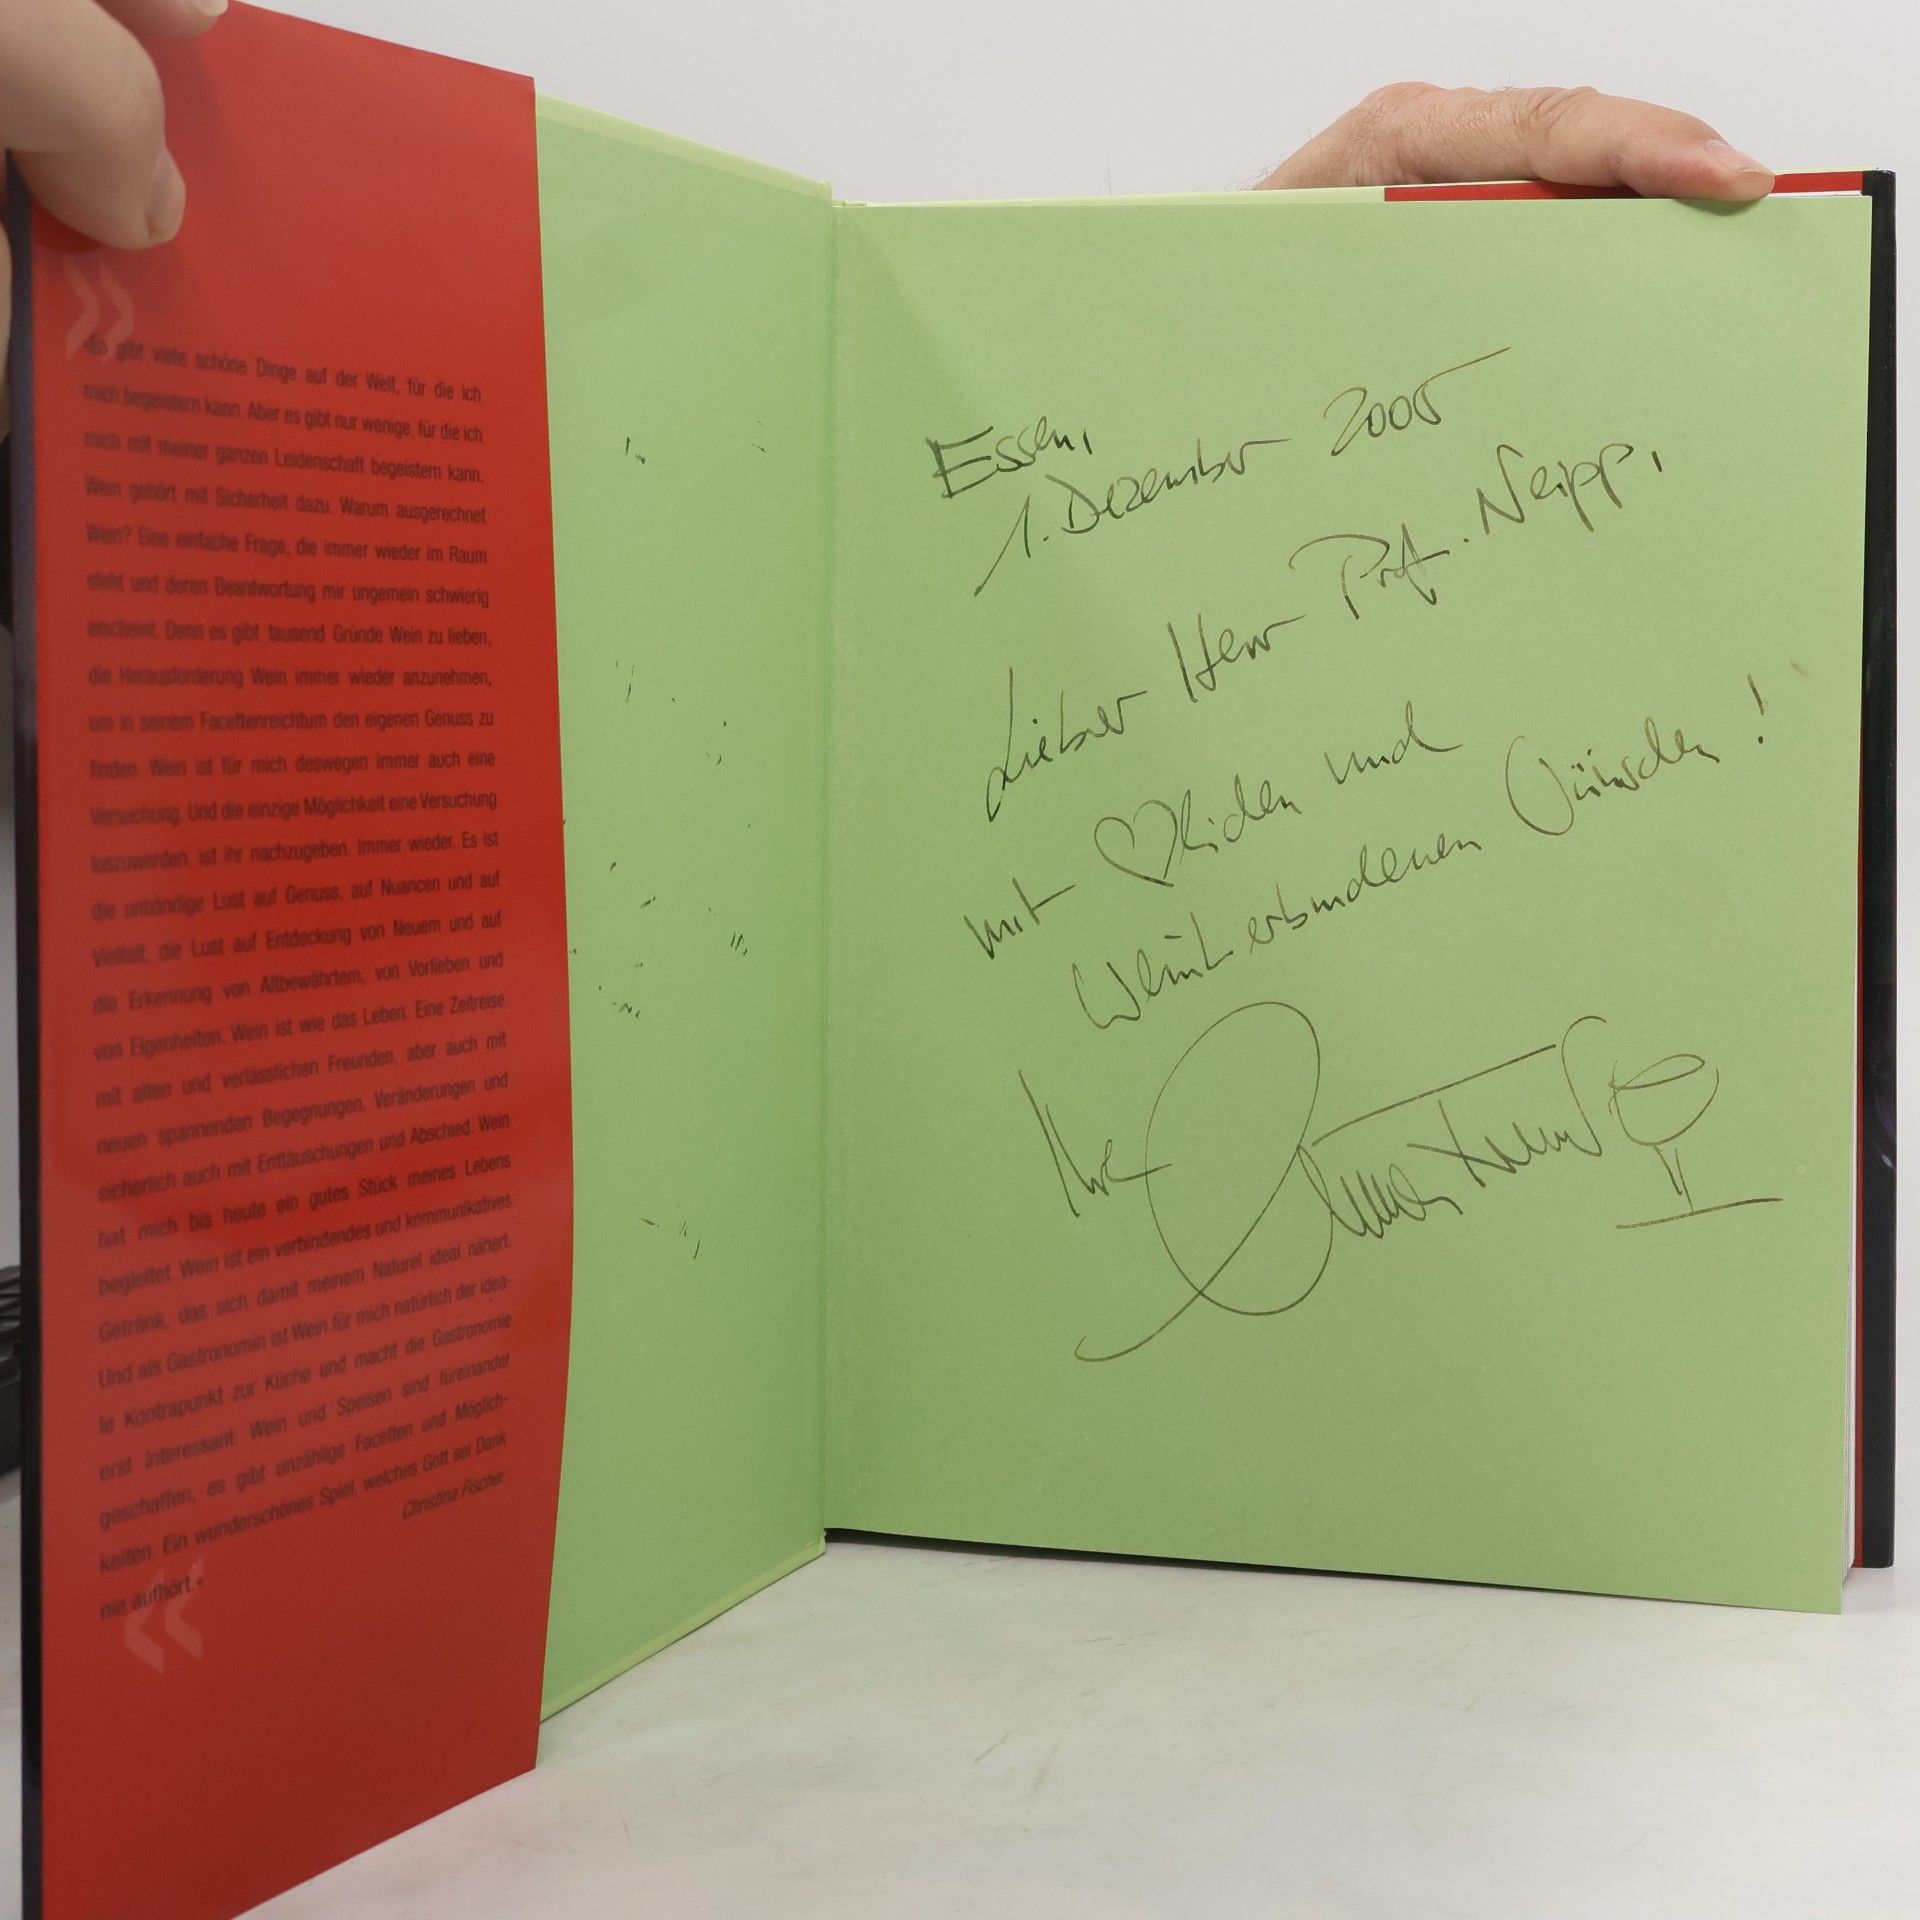 »
»Es gibt viele schöne Dinge auf der Welt, für die ich
mich begeistern kann. Aber es gibt nur wenige, für die ich
mich mit meiner ganzen Leidenschaft begeistern kann.
Wein gehört mit Sicherheit dazu. Warum ausgerechnet
Wein? Eine einfache Frage, die immer wieder im Raum
steht und deren Beantwortung mir ungemein schwierig
erscheint. Denn es gibt tausend Gründe Wein zu lieben,
die Herausforderung Wein immer wieder anzunehmen,
um in seinem Facettenreichtum den eigenen Genuss zu
finden. Wein ist für mich deswegen immer auch eine
Versuchung. Und die einzige Möglichkeit eine Versuchung
loszuwerden, ist ihr nachzugeben. Immer wieder. Es ist
die unbändige Lust auf Genuss, auf Nuancen und auf
Vielfalt, die Lust auf Entdeckung von Neuem und auf
die Erkennung von Altbewährtem, von Vorlieben und
von Eigenheiten. Wein ist wie das Leben. Eine Zeitreise
mit alten und verlässlichen Freunden, aber auch mit
neuen spannenden Begegnungen, Veränderungen und
sicherlich auch mit Enttäuschungen und Abschied. Wein
hat mich bis heute ein gutes Stück meines Lebens
begleitet. Wein ist ein verbindendes und kommunikatives
Getränk, das sich damit meinem Naturel ideal nähert.
Und als Gastronomin ist Wein für mich natürlich der idea-
le Kontrapunkt zur Küche und macht die Gastronomie
erst interessant. Wein und Speisen sind füreinander
geschaffen, es gibt unzählige Facetten und Möglich-
keiten. Ein wunderschönes Spiel, welches Gott sei Dank
nie aufhört.«
Christina Fischer
«
Essen,
1. Dezember 2005
Lieber Herr Prof. Neipp,
mit ♡lichen und
Weinverbundenen Wünschen!
Ihre